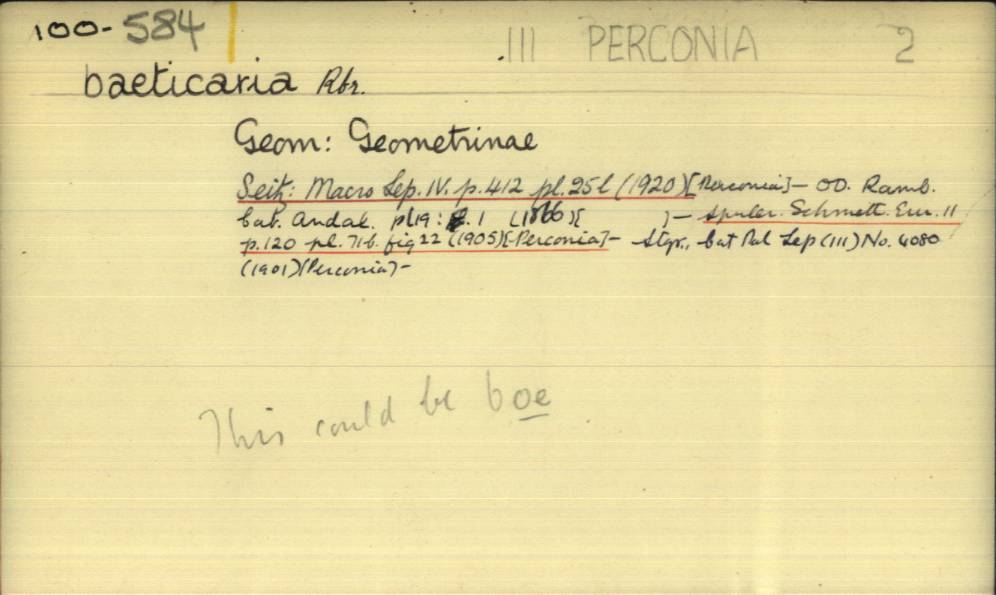 100-584 III PERCONIA 2
baeticaria Rbr.
Geom: Geometrinae
Seitz: Macro Lep. IV. p.412 pl. 25l (1920)[Perconia]- OD. Ramb.
Cat. Andal. pl 19: f. 1 (1866)[ ]- Spuler. Schmett. Eur. II
p.120 pl. 71b. fig 22 (1905)[Perconia]- Stgr., Cat Pal Lep (III) No. 4080
(1901)[Perconia]-
This could be boe